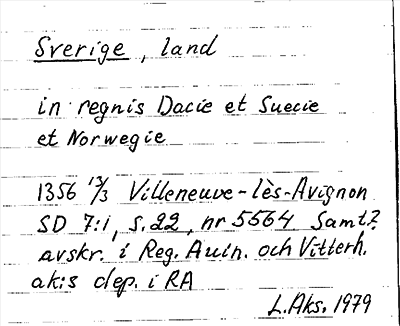 Sverige, land
in regnis Dacie et Suecie
et Norwegie
1356 13/3 Villeneuve-lès-Avignon
SD 7:1, s. 22, nr 5564 Samt?
avskr. i Reg. Avin. och Vitterh.
ak:s dep. i RA
L. Aks. 1979